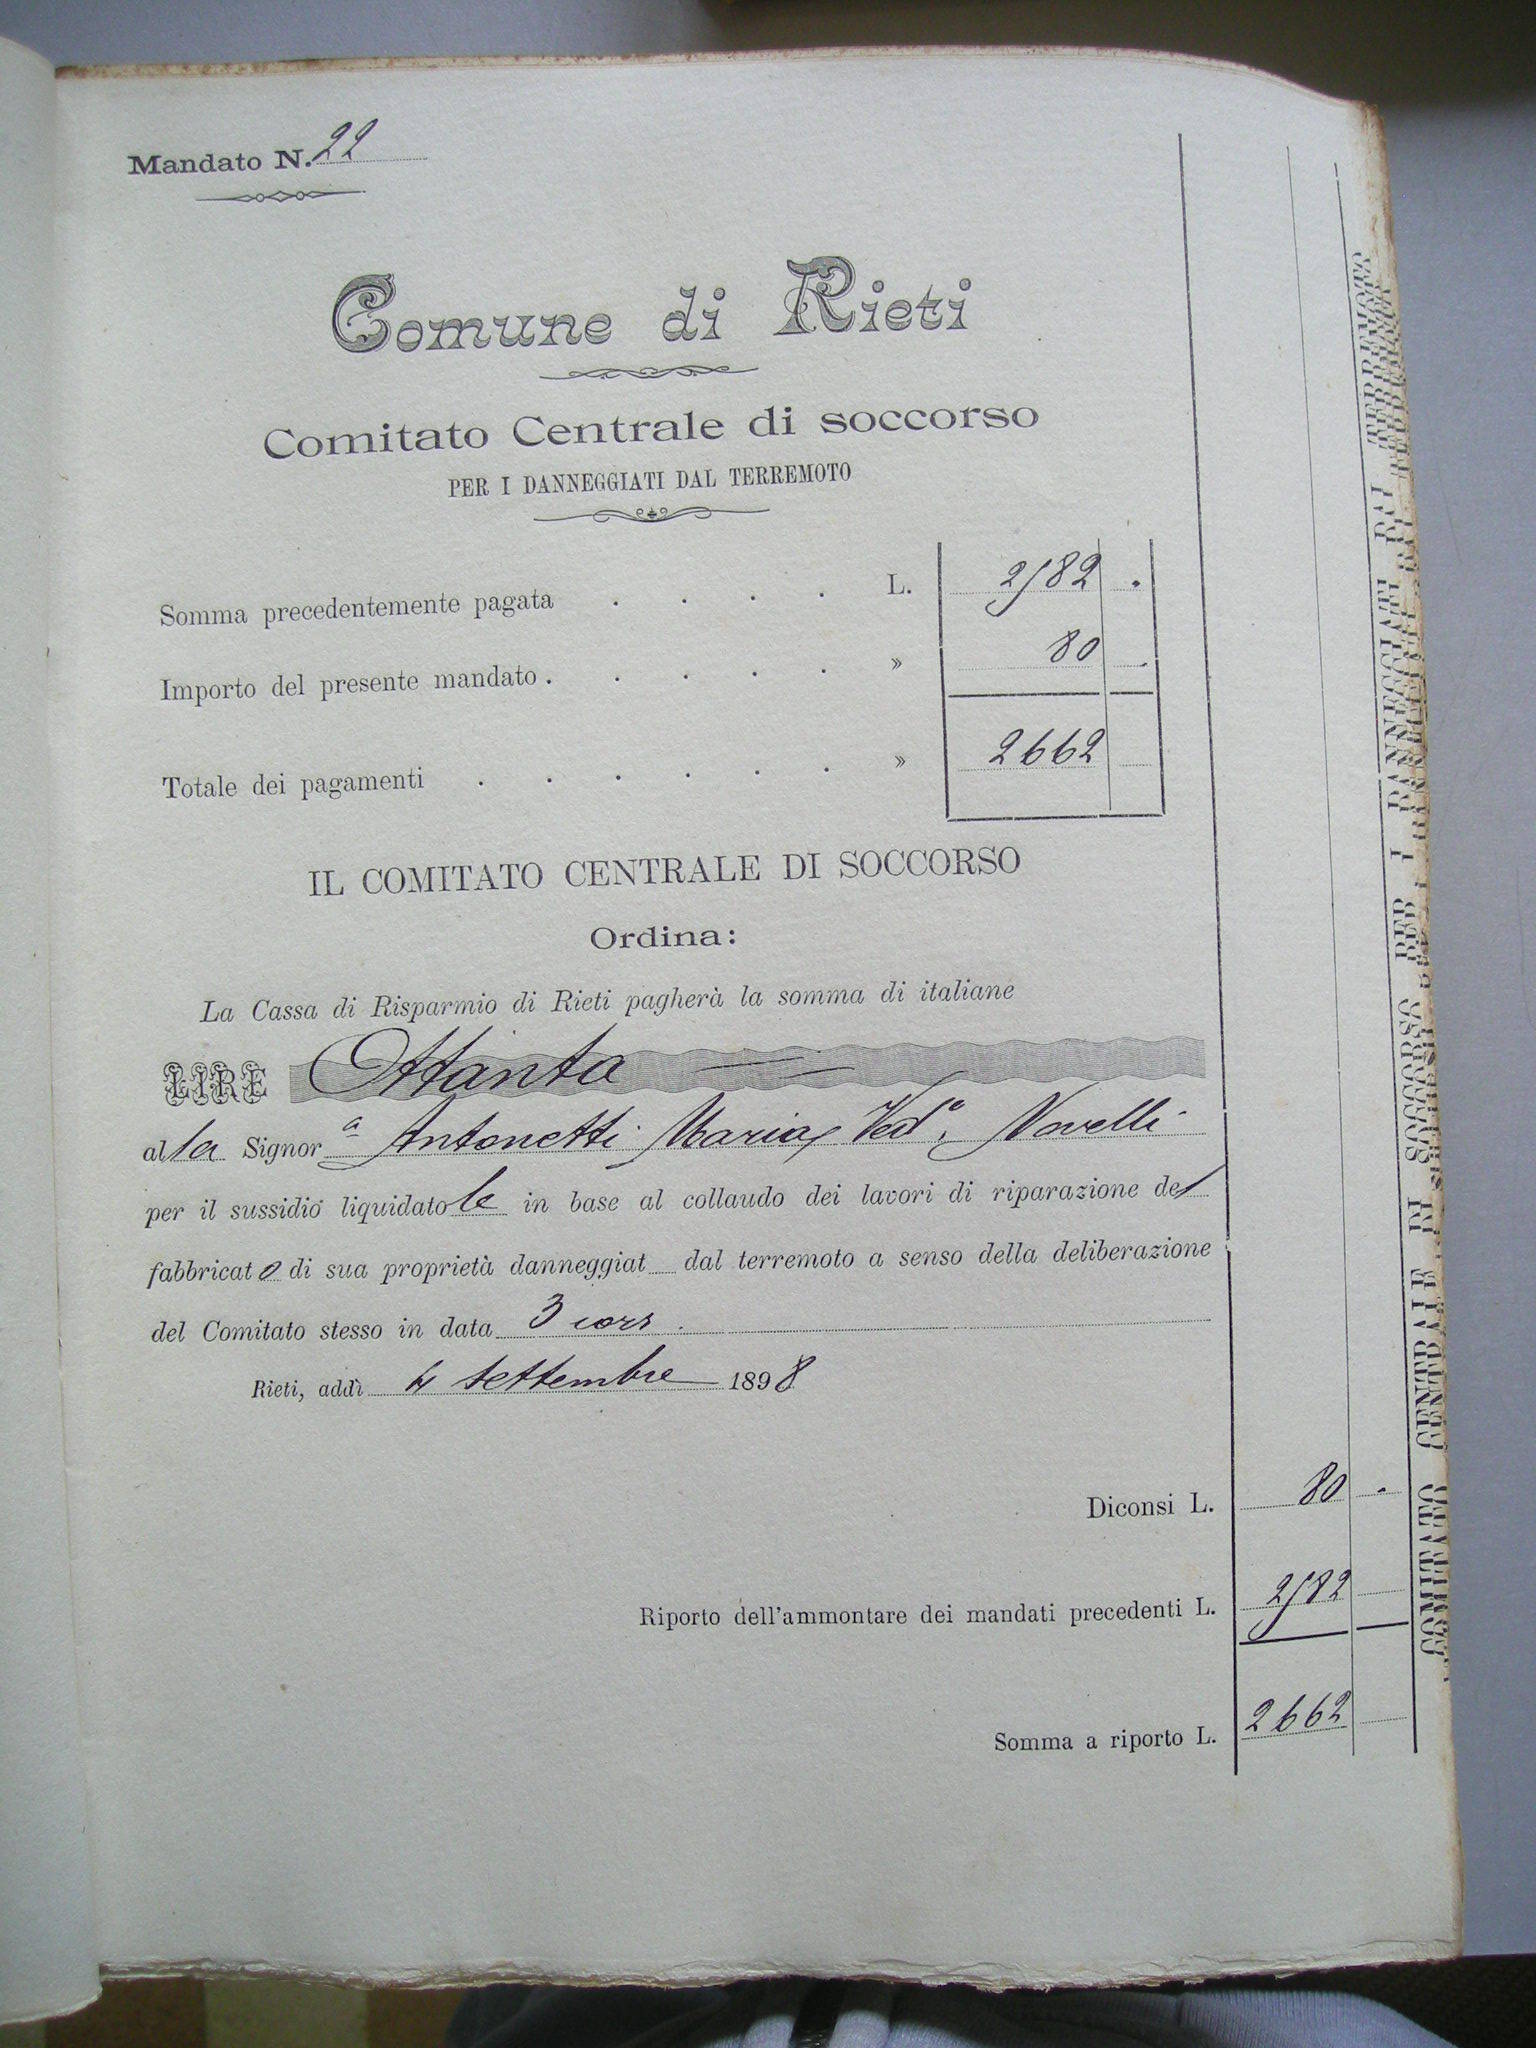 Mandato N. 22
Comune di Rieti
Comitato Centrale di soccorso
PER I DANNEGGIATI DAL TERREMOTO
Somma precedentemente pagata . . . . L. 2582 .
Importo del presente mandato . . . . . » 80 .
Totale dei pagamenti . . . . . . » 2662
IL COMITATO CENTRALE DI SOCCORSO
Ordina:
La Cassa di Risparmio di Rieti pagherà la somma di italiane
LIRE Ottanta
alla Signora Antonetti Maria Ved.ª Novelli
per il sussidio liquidatole in base al collaudo dei lavori di riparazione del
fabbricato di sua proprietà danneggiat dal terremoto a senso della deliberazione
del Comitato stesso in data 3 corr.
Rieti, addì 4 settembre 1898
Diconsi L. 80 .
Riporto dell'ammontare dei mandati precedenti L. 2582
Somma a riporto L. 2662
COMITATO CENTRALE DI SOCCORSO PER I DANNEGGIATI DAL TERREMOTO